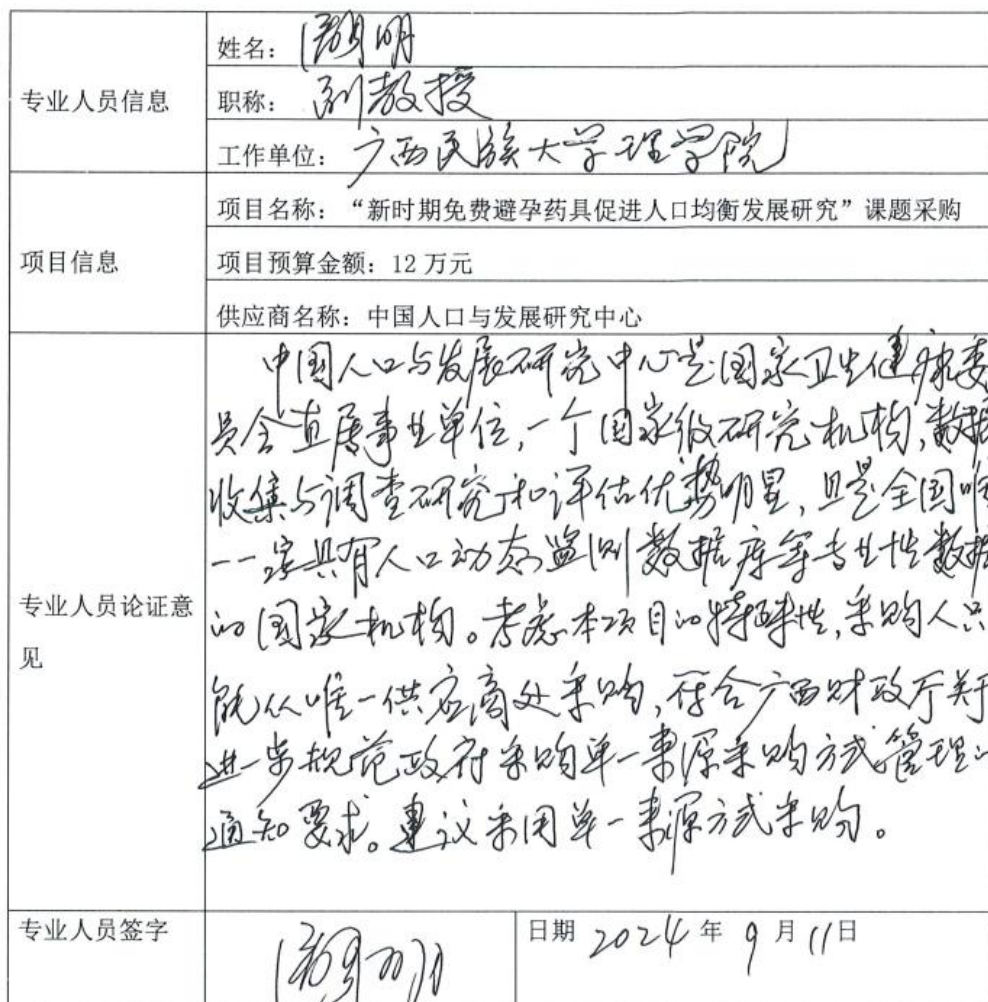 专业人员信息
姓名： 明
职称：副教授
工作单位：广西民族大学理学院
项目信息
项目名称：“新时期免费避孕药具促进人口均衡发展研究”课题采购
项目预算金额：12 万元
供应商名称：中国人口与发展研究中心
专业人员论证意
见
中国人口与发展研究中心是国家卫生健康委
员会直属事业单位，一个国家级研究机构，数据
收集与调查研究和评估优势明显，且是全国唯
一一家具有人口动态监测数据库等专业性数据
的国家机构。考虑本项目的特殊性，采购人只
能从唯一供应商处采购，符合广西财政厅关于
进一步规范政府采购单一来源采购方式管理的
通知要求。建议采用单一来源方式采购。
专业人员签字
日期 2024 年 9 月 11 日